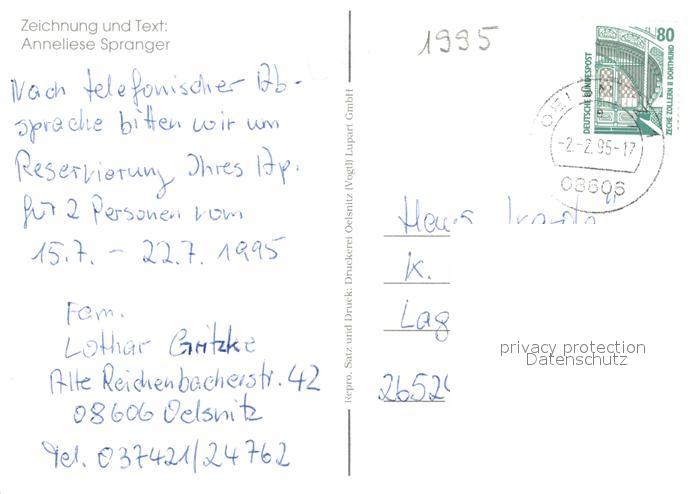 Zeichnung und Text:
Anneliese Spranger
Nach telefonischer Ab-
sprache bitten wir um
Reservierung Ihres Ap.
für 2 Personen vom
15.7. – 22.7. 1995
Fam.
Lothar Gritzke
Alte Reichenbacherstr. 42
08606 Oelsnitz
Tel. 037421/24762
Repro, Satz und Druck: Druckerei Oelsnitz (Vogtl) Lupart GmbH
1995
80
DEUTSCHE BUNDESPOST
ZECHE ZOLLERN II DORTMUND
OEL
-2.-2.95-17
08606
K.
Lag
2652
privacy protection
Datenschutz